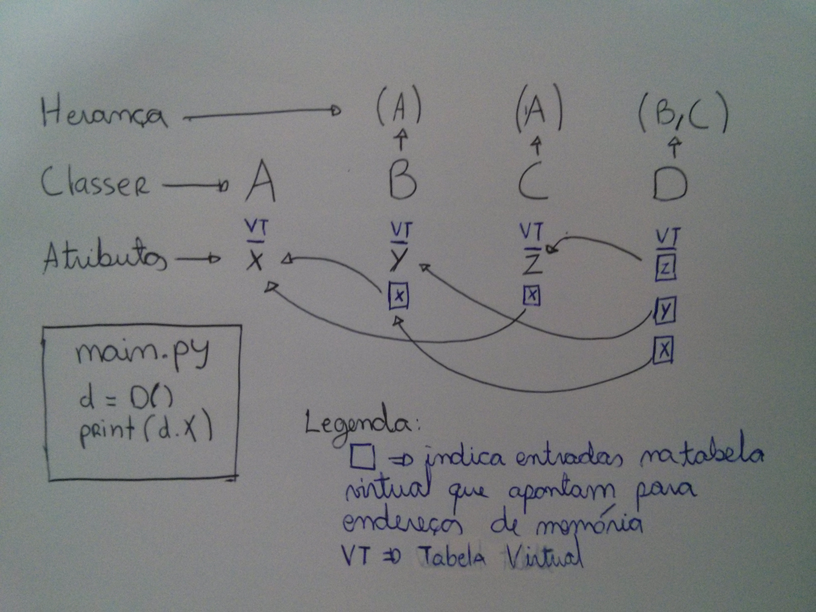 Herança (A) (A) (B,C)
Classer A B C D
VT VT VT VT
Atributos X Y Z z
x x y
x
main.py
d = D()
print(d.X)
Legenda:
⇒ indica entradas na tabela
virtual que apontam para
endereços de memória
VT ⇒ Tabela Virtual